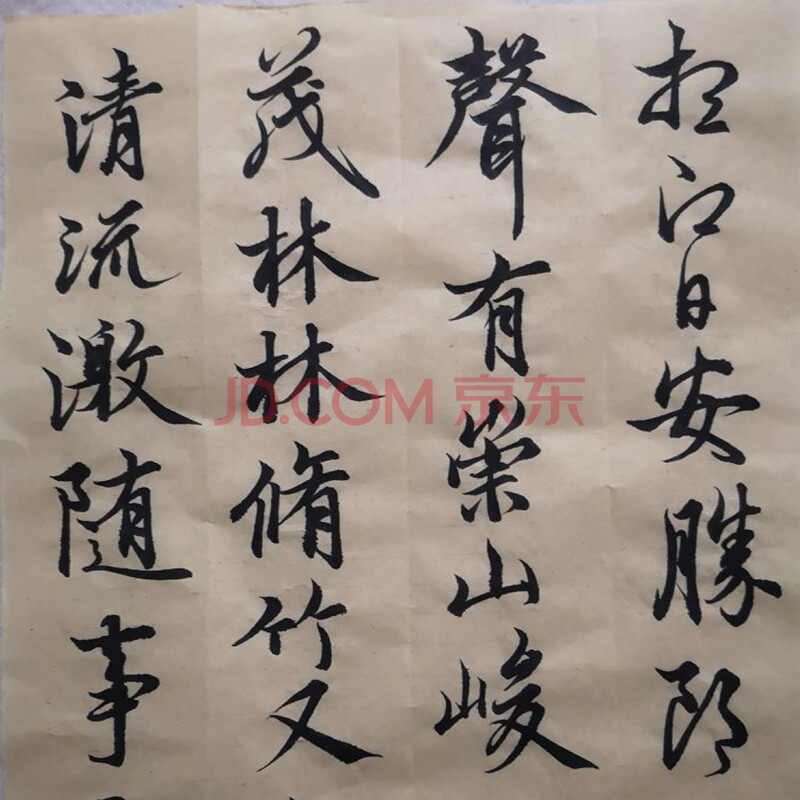 於江日安勝朗
聲有崇山峻
茂林林脩竹又
清流激随事
JD.COM 京东